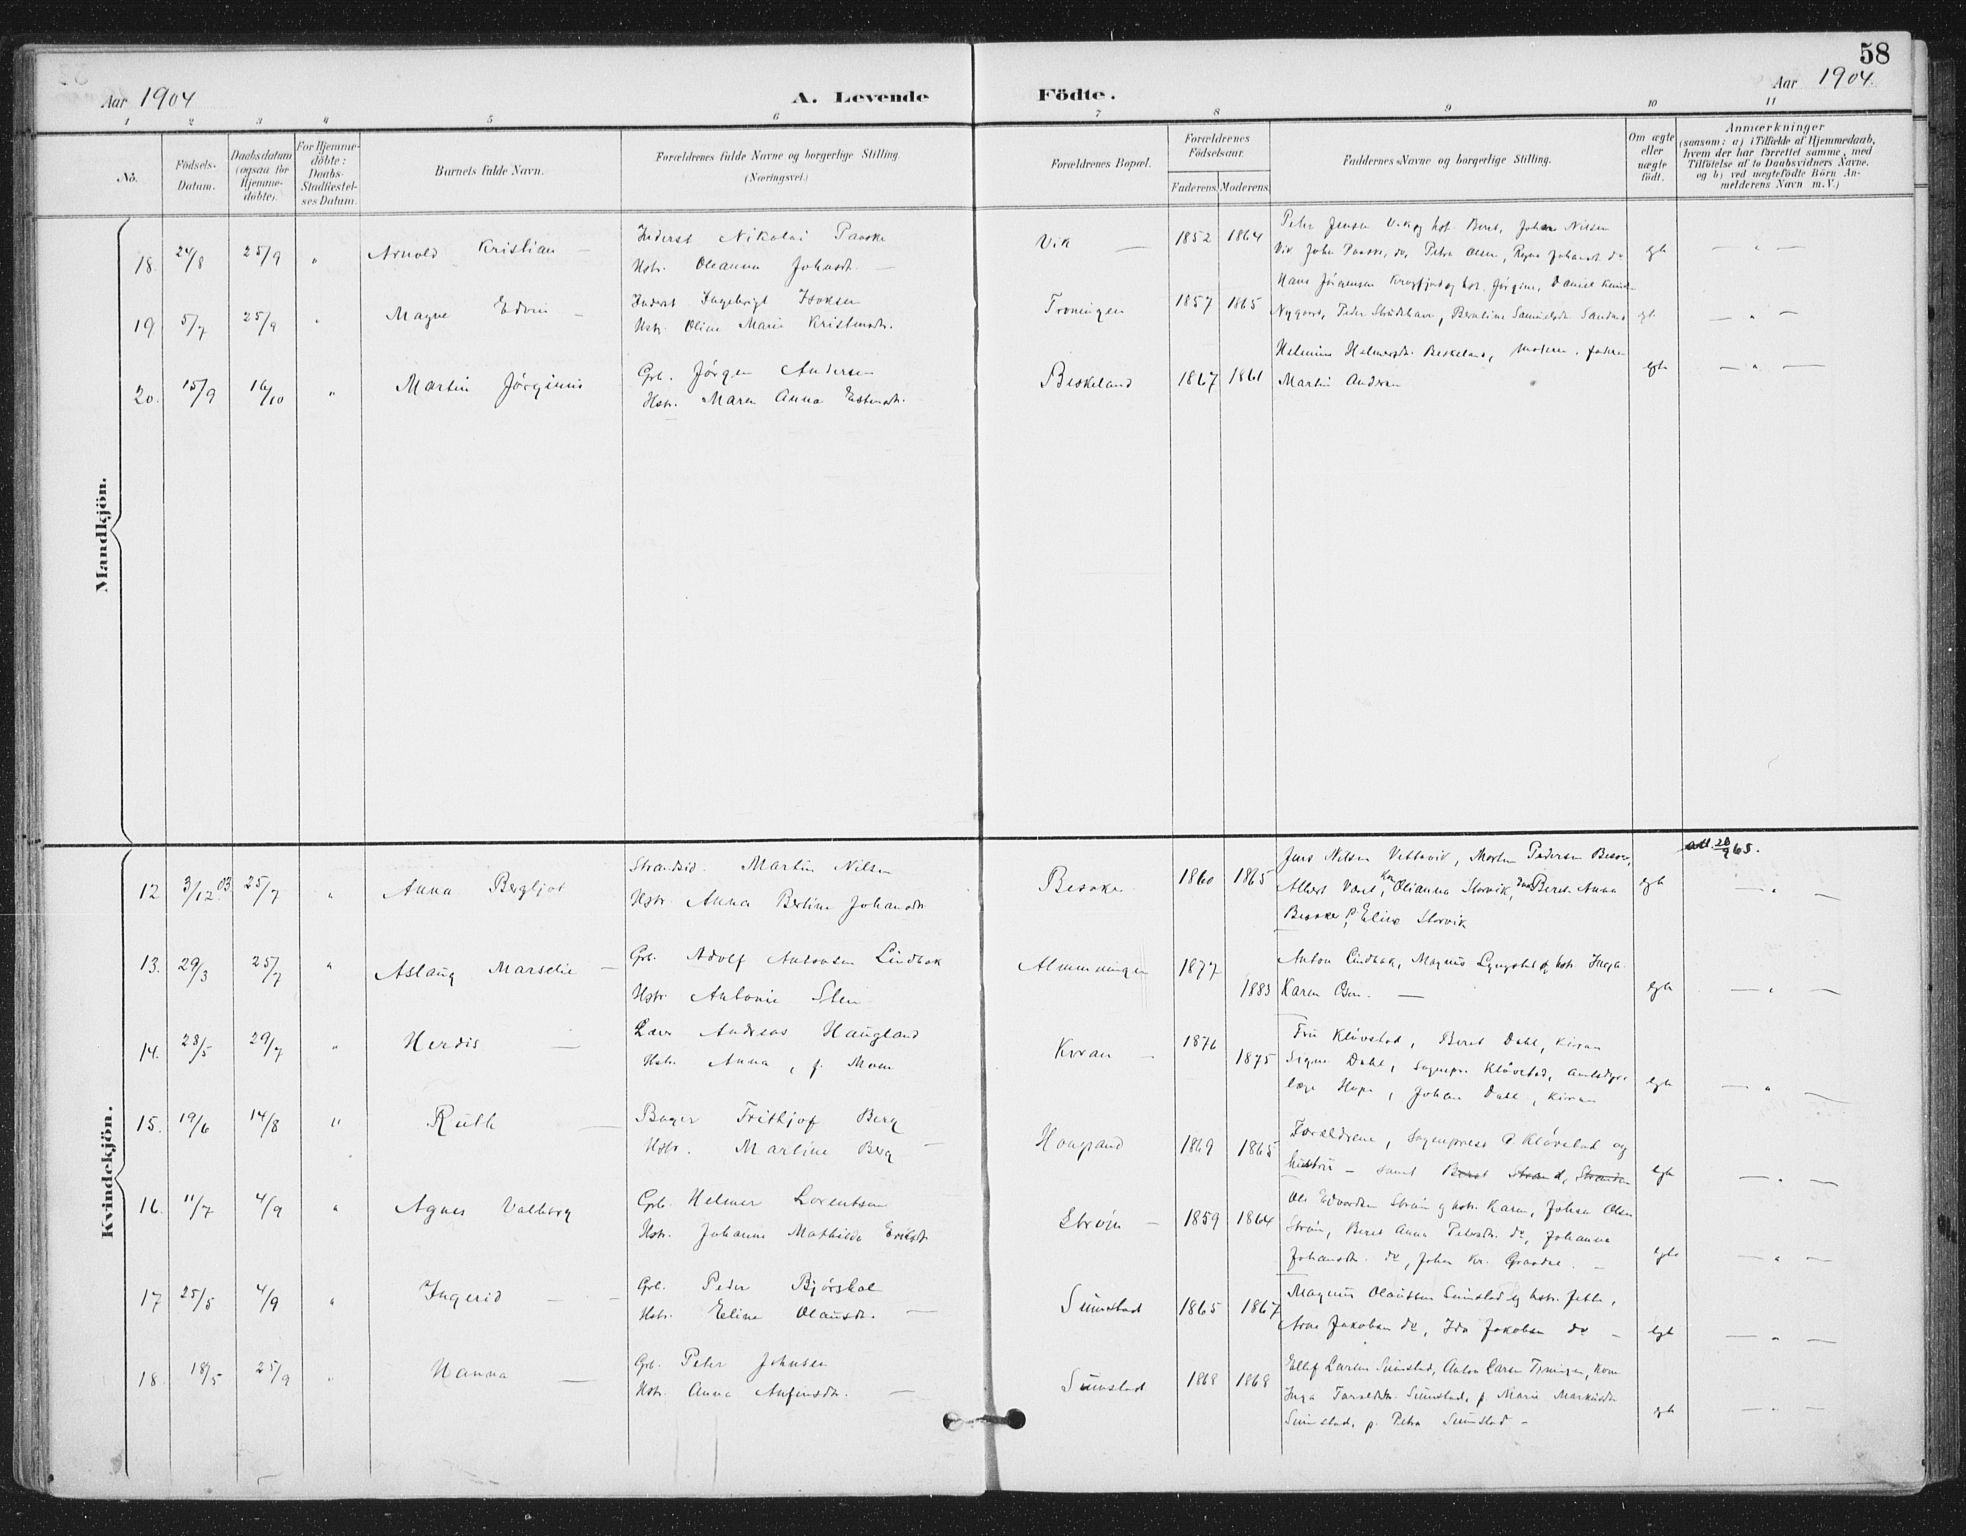 58
Aar 1904
A. Levende Födte.
Aar 1904.
1 2 3 4 5 6 7 8 9 10 11
No.
Födsels-
Datum.
Daabsdatum
(ogsaa for
Hjemme-
döbte).
For Hjemme-
döbte:
Daabs-
Stadfæstel-
ses Datum.
Barnets fulde Navn.
Forældrenes fulde Navne og borgerlige Stilling
(Næringsvei.)
Forældrenes Bopæl.
Forældrenes
Födselsaar.
Faderens. Moderens.
Faddernes Navne og borgerlige Stilling.
Om ægte
eller
uægte
födt.
Anmærkninger
(saasom: a) i Tilfælde af Hjemmedaab,
hvem der har forrettet samme, med
Tilföielse af to Daabsvidners Navne.
og b) ved uægtefödte Börn An-
melderens Navn m. V.)
Mandkjön.
18. 24/8 25/9 " Arnold Kristian — Inderst Nikolai Paaske
Hstr. Oleanna Johnsdt. —
Vik — 1852 1864 Peter Jensen Vik og hst. Beret, Johan Nilsen
Vik John Paaske, do, Petra Olsen, do
egt — " —
19 5/7 25/9 " Magne Edvin — Inderst Ingebrigt Isaksen
Hstr. Oline Marie Kristensdt.
1857 1865 Hans Jörgensen og hst. Jörgine, Daniel
Nygaard, Peder, Berntine Samuelsdt.
egt — " —
20. 15/9 16/10 " Martin Jörginus Grb. Jörgen Andersen
Hstr. Maren Anna
Beskeland 1867 1861 Helmine Helmersdt. Beskeland, Moderen, Faderen
Martin Andersen
egte — " —
Kvindekjön.
12 3/12 03. 25/7 " Anna Bergljot Strandsid. Martin Nilsen
Hstr. Anna Berline Johansdt
Besaker 1860 1865 Jens Nilsen Vettavik, Morten Pedersen Besaker,
Albert, Olianna Storvik, Beret Anna
Besaker, Eline Storvik
egte — " —
att. 28/9 65.
13. 29/3 25/7 " Aslaug Marselie — Grb. Adolf Antonsen Lindbak
Hstr. Antonie Sten
Almenningen 1877 1883 Anton Lindbak, Magnus og hstr. Inga
Karen —
egte — " —
14. 28/5 29/7 " Herdis — Lærer Andreas Haugland
Hstr. Anna, f. Moen
Kiran — 1876 1875 Fru Klövstad, Beret Dahl, Kiran
Signe Dahl, Sognepr. Klövstad,
læge Hope, Johan Dahl, Kiran
egte — " —
15. 19/6 14/8 " Ruth — Bager Frithjof Berg
Hstr. Martine Berg —
1869 1865 Forældrene, Sognepræst Klövstad og
hustru — samt Beret Strand,
egte — " —
16. 11/7 4/9 " Agnes Valborg Grb. Helmer Lorentsen
Hstr. Johanna Mathilde Eriksdt
Ström — 1859 1864 Ole Edvardsen Ström og hstr. Karen, Johan Olsen
Ström, Beret Anna Petersdt. do, Johanna
Johansdt. do, Johan Kr. —
egte — " —
17 25/5 4/9 " Ingerid — Grb. Peder Björsdal
Hstr. Eline Olausdt. —
Sumstad 1865 1867 Magnus Olaussen Sumstad og hstr. Jette,
Arne Jakobsen do, Ida Jakobsen do —
egt — " —
18. 18/5 25/9 " Hanna — Grb. Peter Johnsen
Hstr. Anna Anfinsdt. —
Sumstad 1868 1868 Ellef Larsen Sumstad, Anton Larsen, Kone
Inga Sumstad, p. Marie
Sumstad, p. Petra Sumstad —
egt — " —